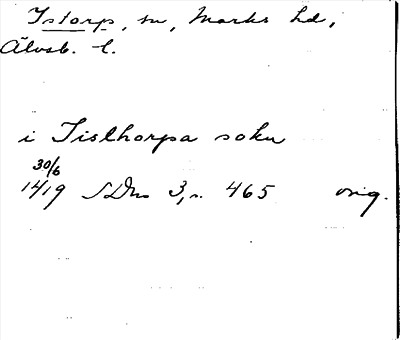 Istorp, sn, Marks hd,
Älvsb. l.
i Tislthorpa sokn
30/6
1419 SDns 3, s. 465 orig.